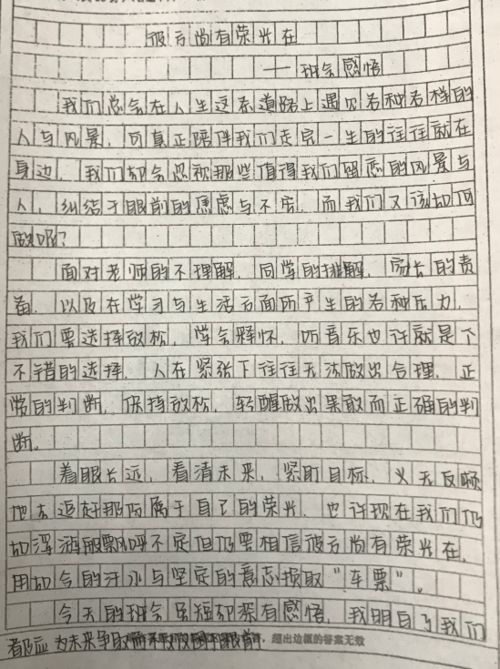 彼方尚有荣光在
——班会感悟
我们总会在人生这条道路上遇见各种各样的
人与风景，可真正陪伴我们走完一生的往往就在
身边，我们却会忽视那些值得我们留恋的风景与
人，纠结于眼前的焦虑与不安，而我们又该如何
做呢？
面对老师的不理解，同学的排解，家长的责
备，以及在学习与生活方面所产生的各种压力，
我们要选择放松，学会释怀，听音乐也许就是个
不错的选择，人在紧张下往往无法做出合理，正
常的判断，保持放松，轻醒做出果敢而正确的判
断。
着眼长远，看清未来，紧盯目标，义无反顾
地去追赶那所属于自己的荣光，也许现在我们仍
如浮游般飘忽不定但仍要相信彼方尚有荣光在，
用如今的汗水与坚定的意志换取“车票”。
今天的班会虽短却深有感悟，我明白了我们
都应为未来争取而不仅仅图于眼前
超出边框的答案无效